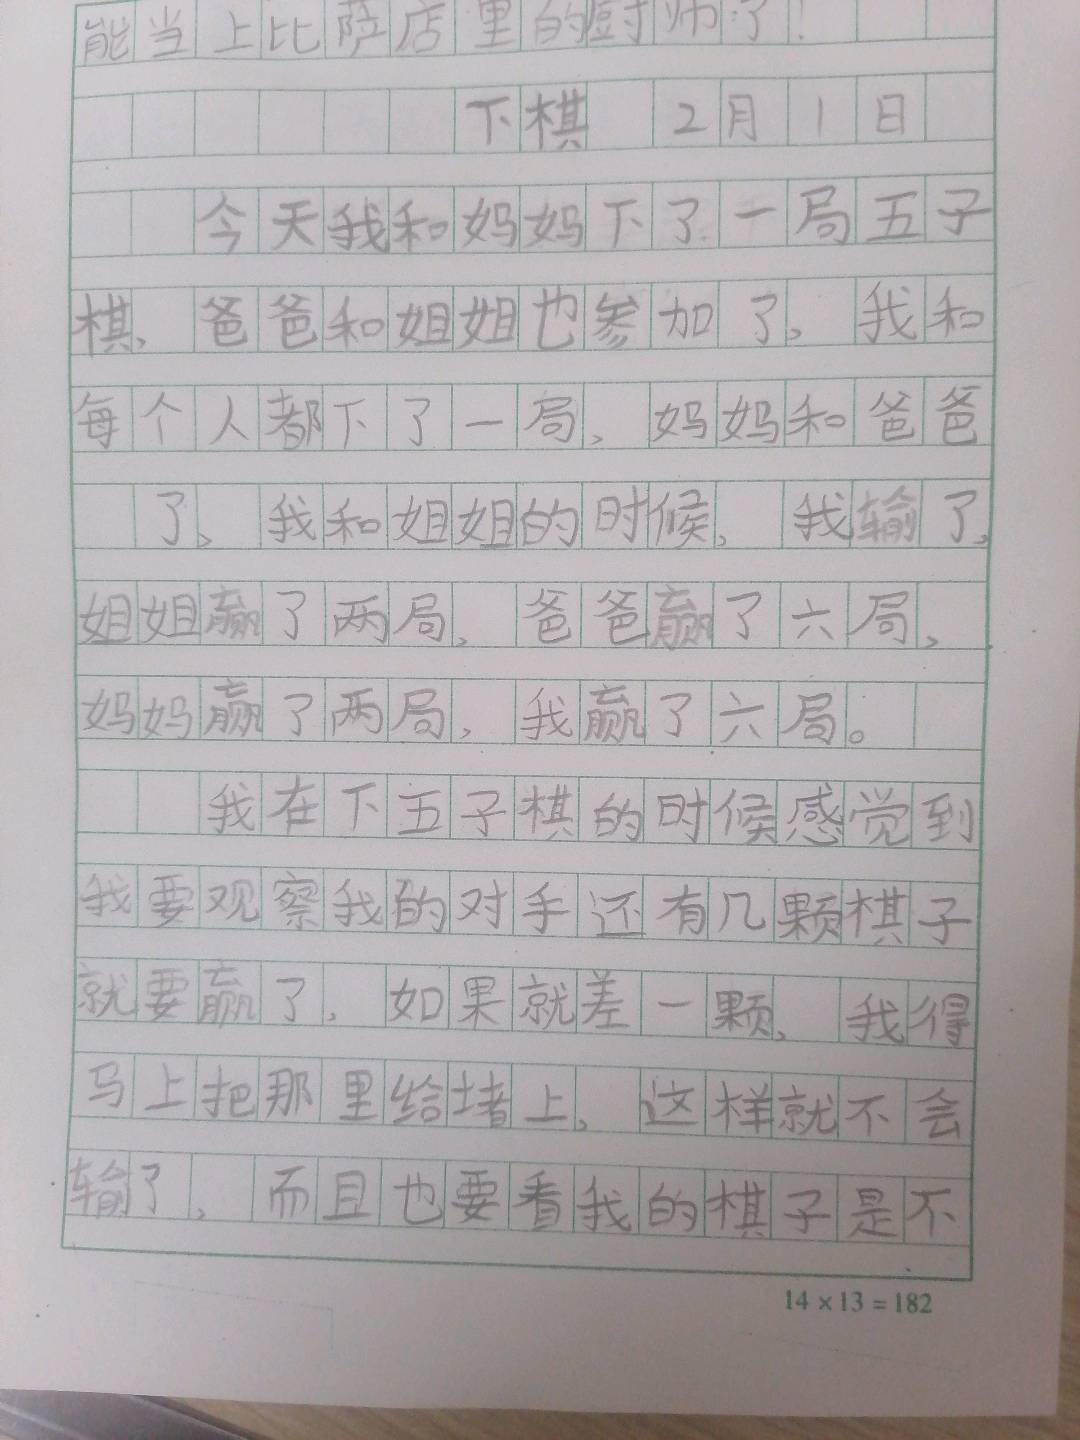 能当上比萨店里的厨师了!
下棋 2月1日
今天我和妈妈下了一局五子
棋,爸爸和姐姐也参加了,我和
每个人都下了一局,妈妈和爸爸
了,我和姐姐的时候,我输了,
姐姐赢了两局,爸爸赢了六局,
妈妈赢了两局,我赢了六局。
我在下五子棋的时候感觉到
我要观察我的对手还有几颗棋子
就要赢了,如果就差一颗,我得
马上把那里给堵上,这样就不会
输了,而且也要看我的棋子是不
14×13=182